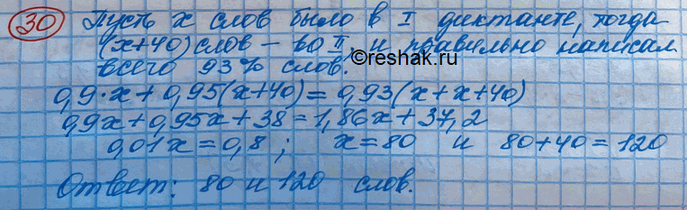 30 Пусть x слов было в I диктанте, тогда
(x+40) слов – во II, и правильно написал
всего 93% слов.
©reshak.ru
0,9·x + 0,95(x+40) = 0,93(x+x+40)
0,9x + 0,95x + 38 = 1,86x + 37,2
0,01x = 0,8; x = 80 и 80+40 = 120
Ответ: 80 и 120 слов.